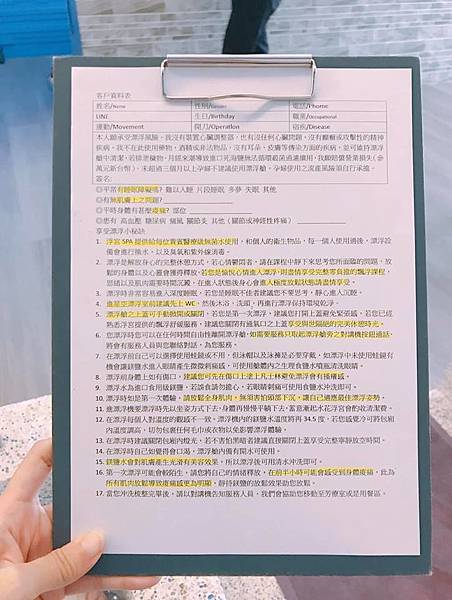 客戶資料表
姓名/Name 性別/Gender 電話/Phome
LINE 生日/Birthday 職業/Occupational
運動/Movement 開刀/Operation 宿疾/Disease
本人願承受漂浮風險，我沒有裝置心臟調整器，也有沒任何心臟問題，沒有癲癇或攻擊性的精神
疾病，我不在此使用藥物，酒精或非法物品，沒有耳朵，皮膚等傳染方面的疾病，並可維持漂浮
簽名:
◎平常有睡眠障礙嗎? 難以入睡 片段睡眠 多夢 失眠 其他
◎有無肌膚上之問題?
◎平時身體有甚麼痠痛? 部位
◎患有 高血壓 糖尿病 痛風 關節炎 其他(關節或神經性疼痛)
享受漂浮小秘訣
1. 浮宮 SPA 提供給每位貴賓醫療級無菌水使用，和個人的衛生物品，每一個人使用過後，漂浮設
備會進行換水，以及臭氧和紫外線消毒。
2. 漂浮是解放身心的完整休憩方式，若心情鬱悶者，請在課程中靜下來思考您所面臨的問題，放
鬆的身體以及心靈會獲得釋放，若您是愉悅心情進入漂浮，則盡情享受完整零負擔的飄浮課程，
思緒以及肌肉需要時間沉澱，在進入狀態後身心會進入極度放鬆狀態請盡情享受。
3. 漂浮時非常容易進入深度睡眠，若您是睡眠不佳者建議您不要思考，靜心進入沉睡。
4. 進星空漂浮室前建議先上 WC，然後沐浴，洗頭，再進行漂浮保持環境乾淨。
5. 漂浮艙之上蓋可手動掀開或關閉，若您是第一次漂浮，建議您打開上蓋避免緊張感，若您已經
熟悉浮宮提供的飄浮舒緩服務，建議您關閉有通氣口之上蓋享受與世隔絕的完美休憩時光。
6. 您漂浮時您可以在任何時間自由性離開漂浮艙，如需要服務只取起漂浮艙旁之對講機按鈕通話，
將會有服務人員與您聯絡對話，為您服務。
7. 在漂浮前自己可以選擇使用蛙鏡或不用，但泳帽以及泳褲是必要穿戴，如漂浮中未使用蛙鏡有
機會讓鎂鹽水進入眼睛產生微微刺痛感，可使用艙體內之生理食鹽水噴瓶清洗眼睛。
8. 漂浮前身體上如有傷口，建議您可先在傷口上塗上凡士林避免漂浮會有搔癢感。
9. 漂浮水為進口食用級鎂鹽，若誤食請勿擔心，若眼睛刺痛可使用食鹽水沖洗即可。
10. 漂浮時如是第一次體驗，請放鬆全身肌肉，無須害怕頭部下沉，讓自己適應最佳漂浮姿勢。
11. 進漂浮機要漂浮時先以坐姿方式下去，身體再慢慢平躺下去，蓄意濺起水花浮宮會酌收清潔費。
12. 在漂浮每個人對溫度的觀感不一致，漂浮機內的鎂鹽水溫度將再 34.5 度，若您感覺冷可將包廂
內溫度調高，切勿包裹任何毛巾或衣物以免影響漂浮體驗。
13. 在漂浮時建議關閉包廂內燈光，若不害怕黑暗者建議直接關閉上蓋享受完整寧靜放空時間。
14. 在漂浮時自己如覺得會口渴，漂浮艙內備有開水可使用。
15. 鎂鹽水會對肌膚產生光滑有美容效果，所以漂浮後可用清水沖洗即可。
16. 第一次漂浮可能會較陌生，請您將自己的情緒釋放，在前半小時可能會感受到身體痠痛，此為
所有肌肉放鬆導致痠痛感更為明顯，靜待鎂鹽的放鬆效果助您放鬆。
17. 當您沖洗梳整完畢後，請以對講機告知服務人員，我們會協助您移動至芳療室或是用餐區。